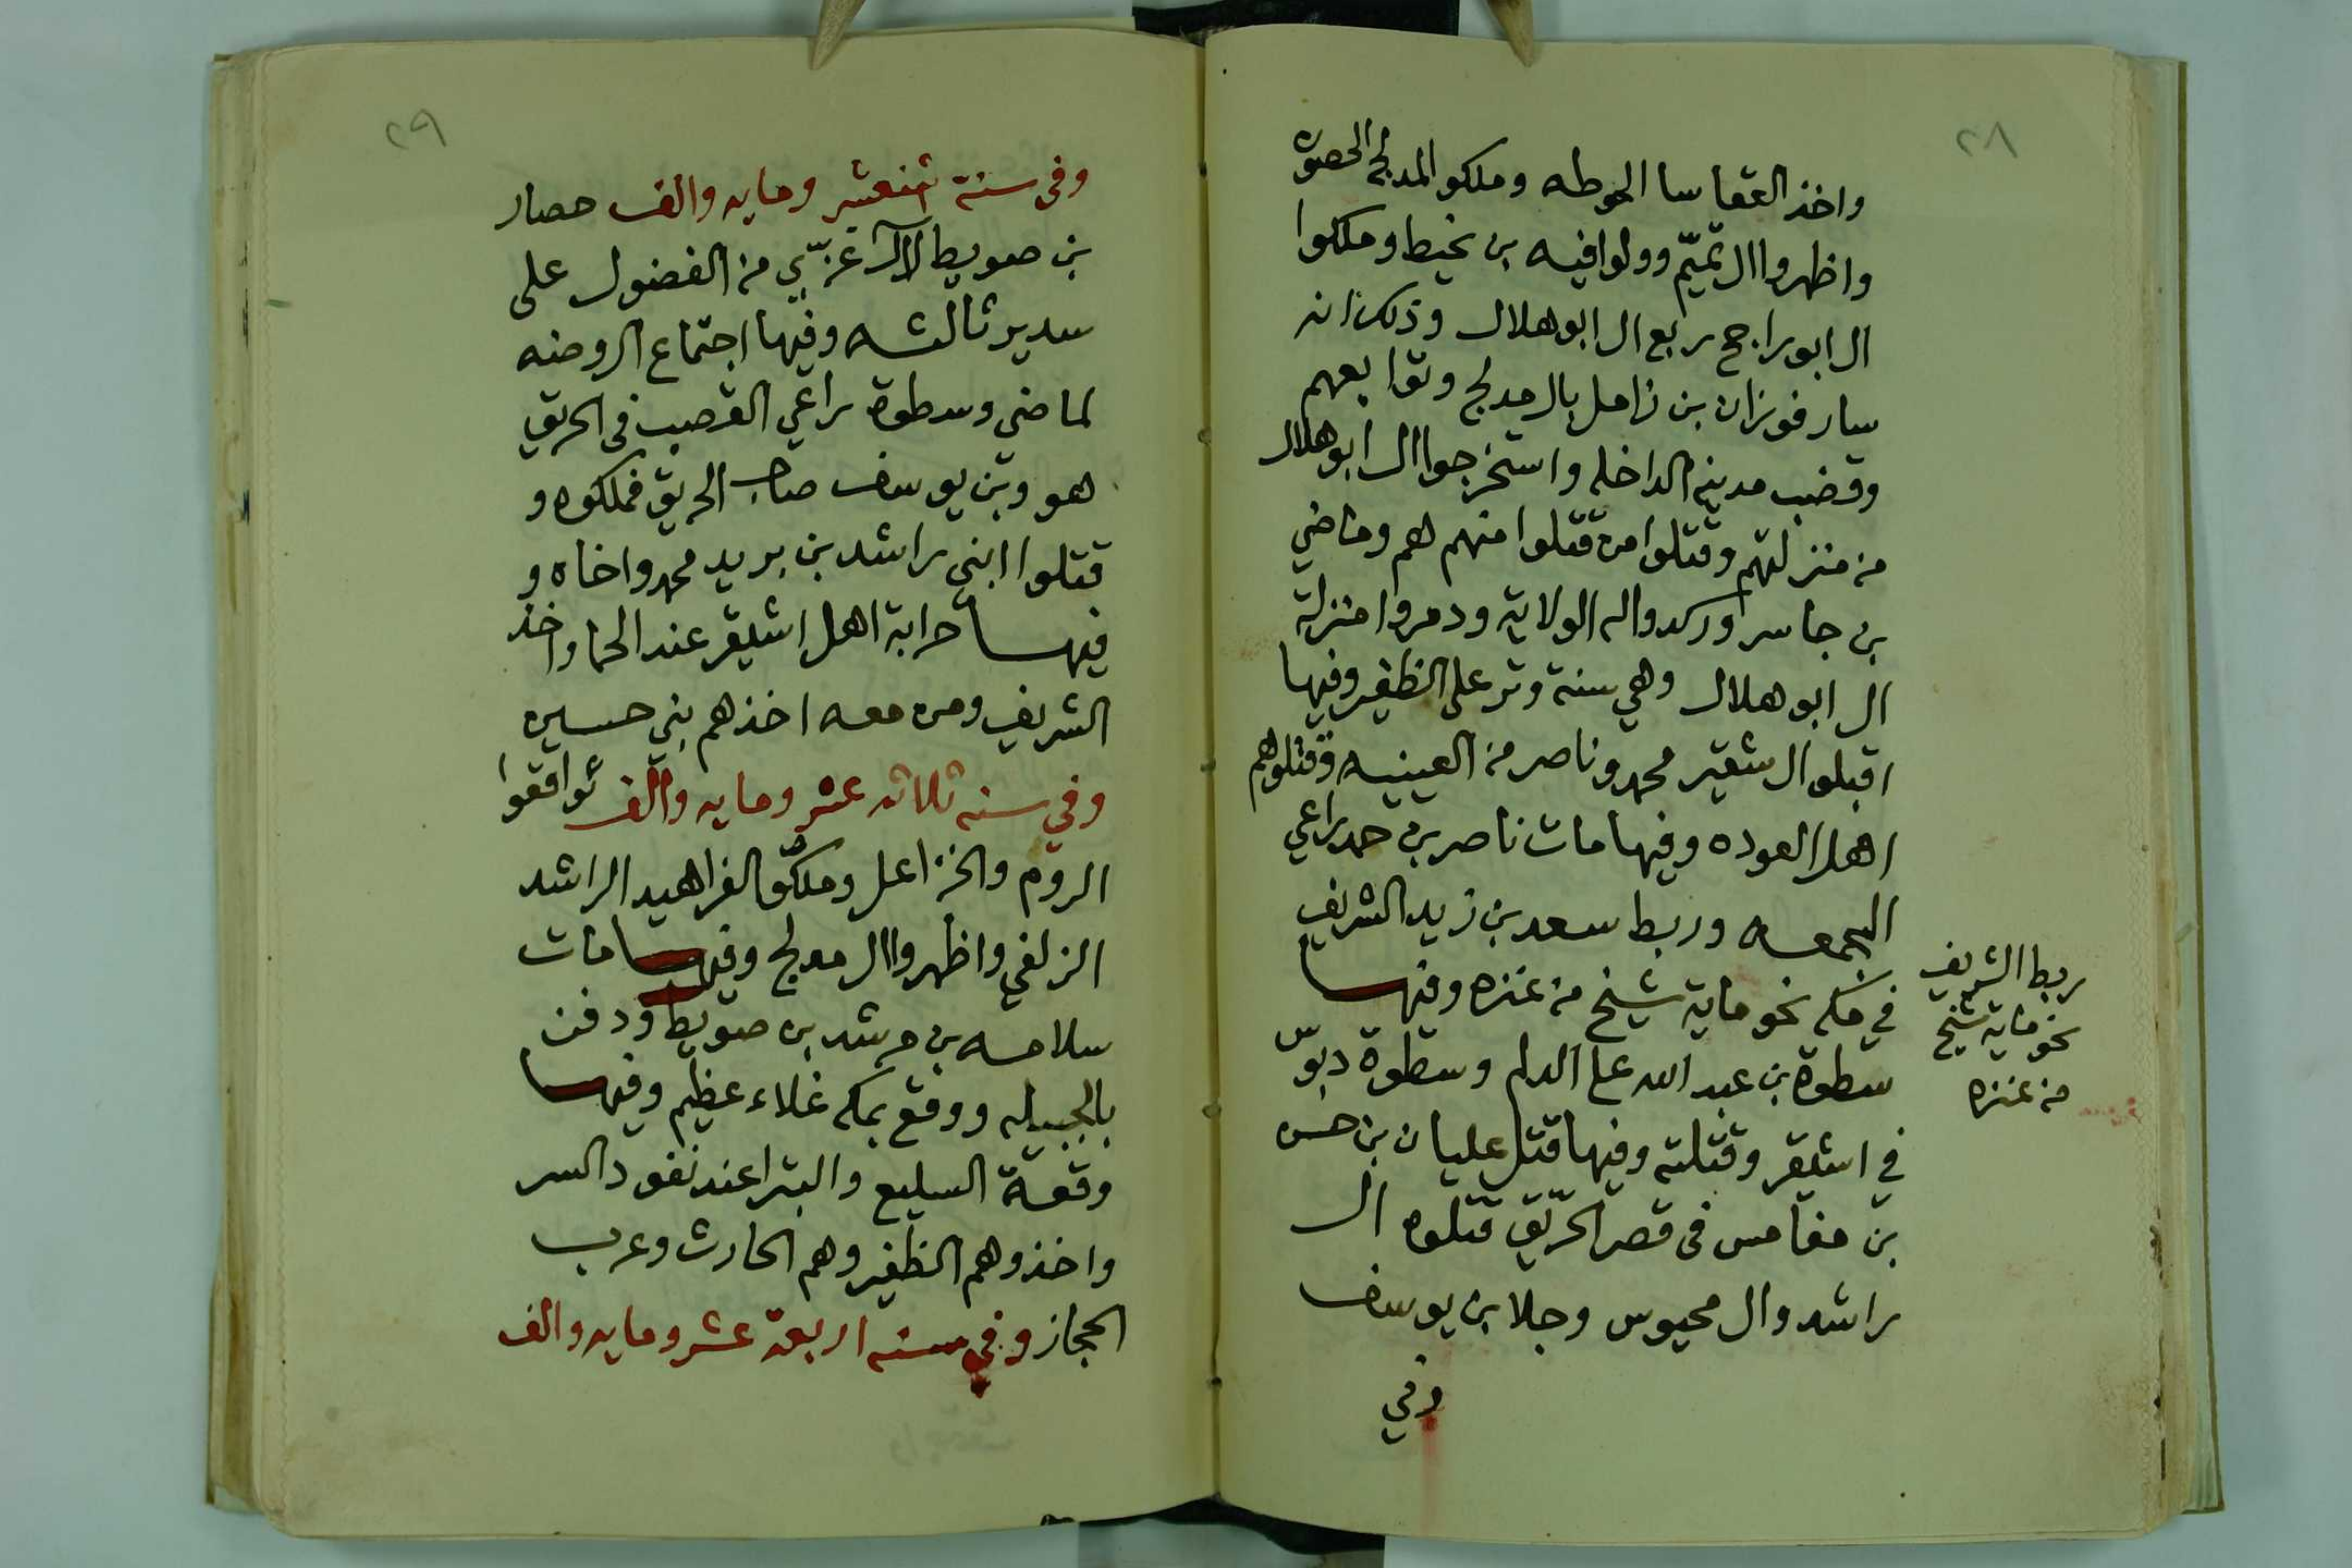 ٢٨
واخذ العقاسا الحوطه وملكو المدلج الحصون
واظهروا ال تميّم وولوا فيه بن نحيط وملكوا
ال ابو راجح ربع ال ابو هلال وذلك انه
سار فوزان بن زامل بال مدلج وتوابعهم
وقضب مدينه الداخله واستخرجوا ال ابو هلال
من منزلتهم وقتلوا من قتلوا منهم هم وماضي
بن جاسر اوركدوا له الولاية ودمروا منزلة
ال ابو هلال وهي سنة وتر على الظفير وفيها
اقبلو ال شقير محمد وناصر من العيينيه وقتلوهم
اهل العوده وفيها مات ناصر بن حمد راعي
المجمعه وربط سعد بن زيد الشريف
في مكه نحو ماية شيخ من عنزه وفيها
سطوة بن عبد الله على الدلم وسطوة دبوّس
في اشيقر وقتلته وفيها قتل عليان بن حسن
بن مغامس في قصر الحريّق قتلوه ال
راشد وال محيوس وجلا بن يوسف
وفي
ربط الشريف
نحو ماية شيخ
من عنزه
٢٩
وفي سنة اثنعشر ومايه والف حصار
بن صويط لآل غزيّ من الفضول على
سدير ثالثه وفيها اجتماع الروضه
لماضي وسطوة راعي القصب في الحريق
هو وبن يوسف صاحب الحريق فملكوه و
قتلوا ابني راشد بن بريد محمد واخاه و
فيها حرابة اهل اشيقر عند الحما واخذ
الشريف ومن معه اخذهم بني حسين
وفي سنه ثلاثه عشر ومايه والف توافقوا
الروم والخزاعل وملكو الفراهيد الراشد
الزلفي واظهروا ال مدلج وفيها مات
سلامه بن مرشد بن صويط ودفن
بالجبيله ووقع بمكه غلاء عظيم وفيها
وقعة السليع والبترا عند نفود السر
واخذوهم الظفير وهم الحارث وعرب
الحجاز وفي سنه اربعة عشر ومايه والف